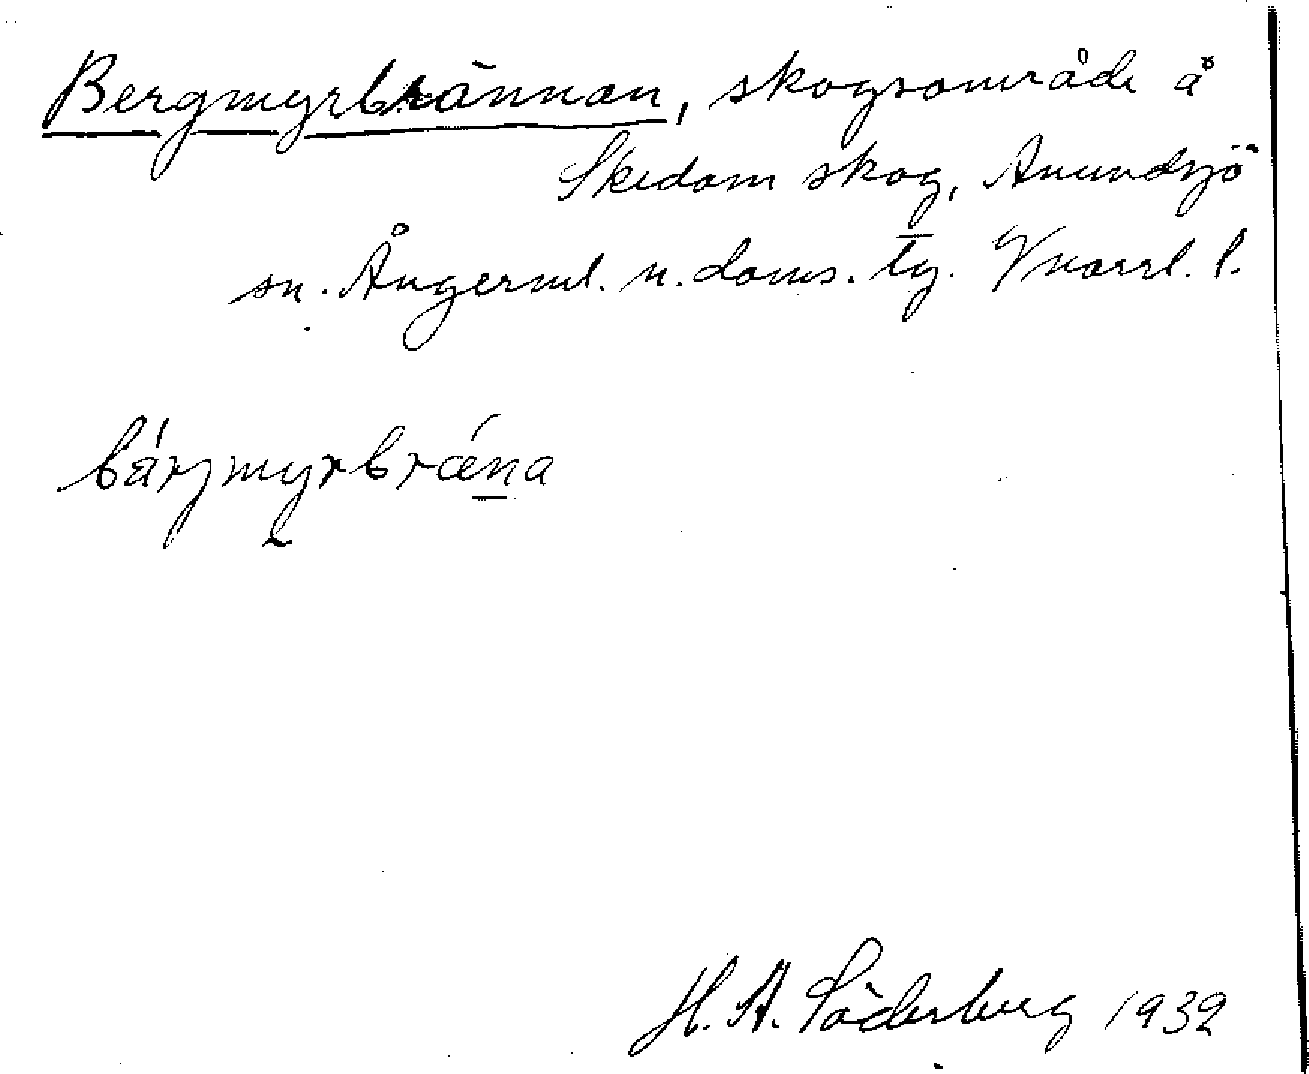 Bergmyrbrännan, skogsområde å
Skedom skog, Anundsjö
sn. Ångerml. n. doms. tg. Vnorrl. l.
bárjmyrbrǽna
H. A. Söderberg 1932